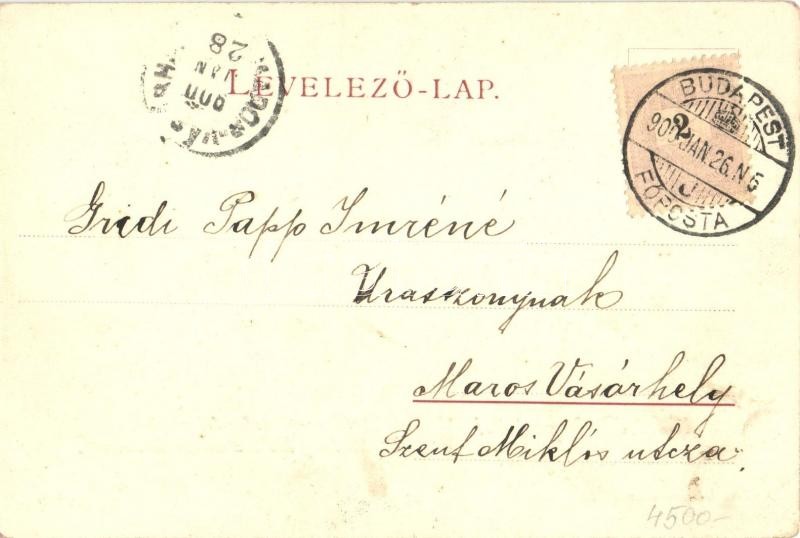 LEVELEZŐ-LAP.
BUDAPEST
900 JAN. 26. N 6
FŐPOSTA
2
28
JAN
900
Papp Imréné
Uraszonynak
Maros Vásárhely
Szent Miklós utcza
4500-